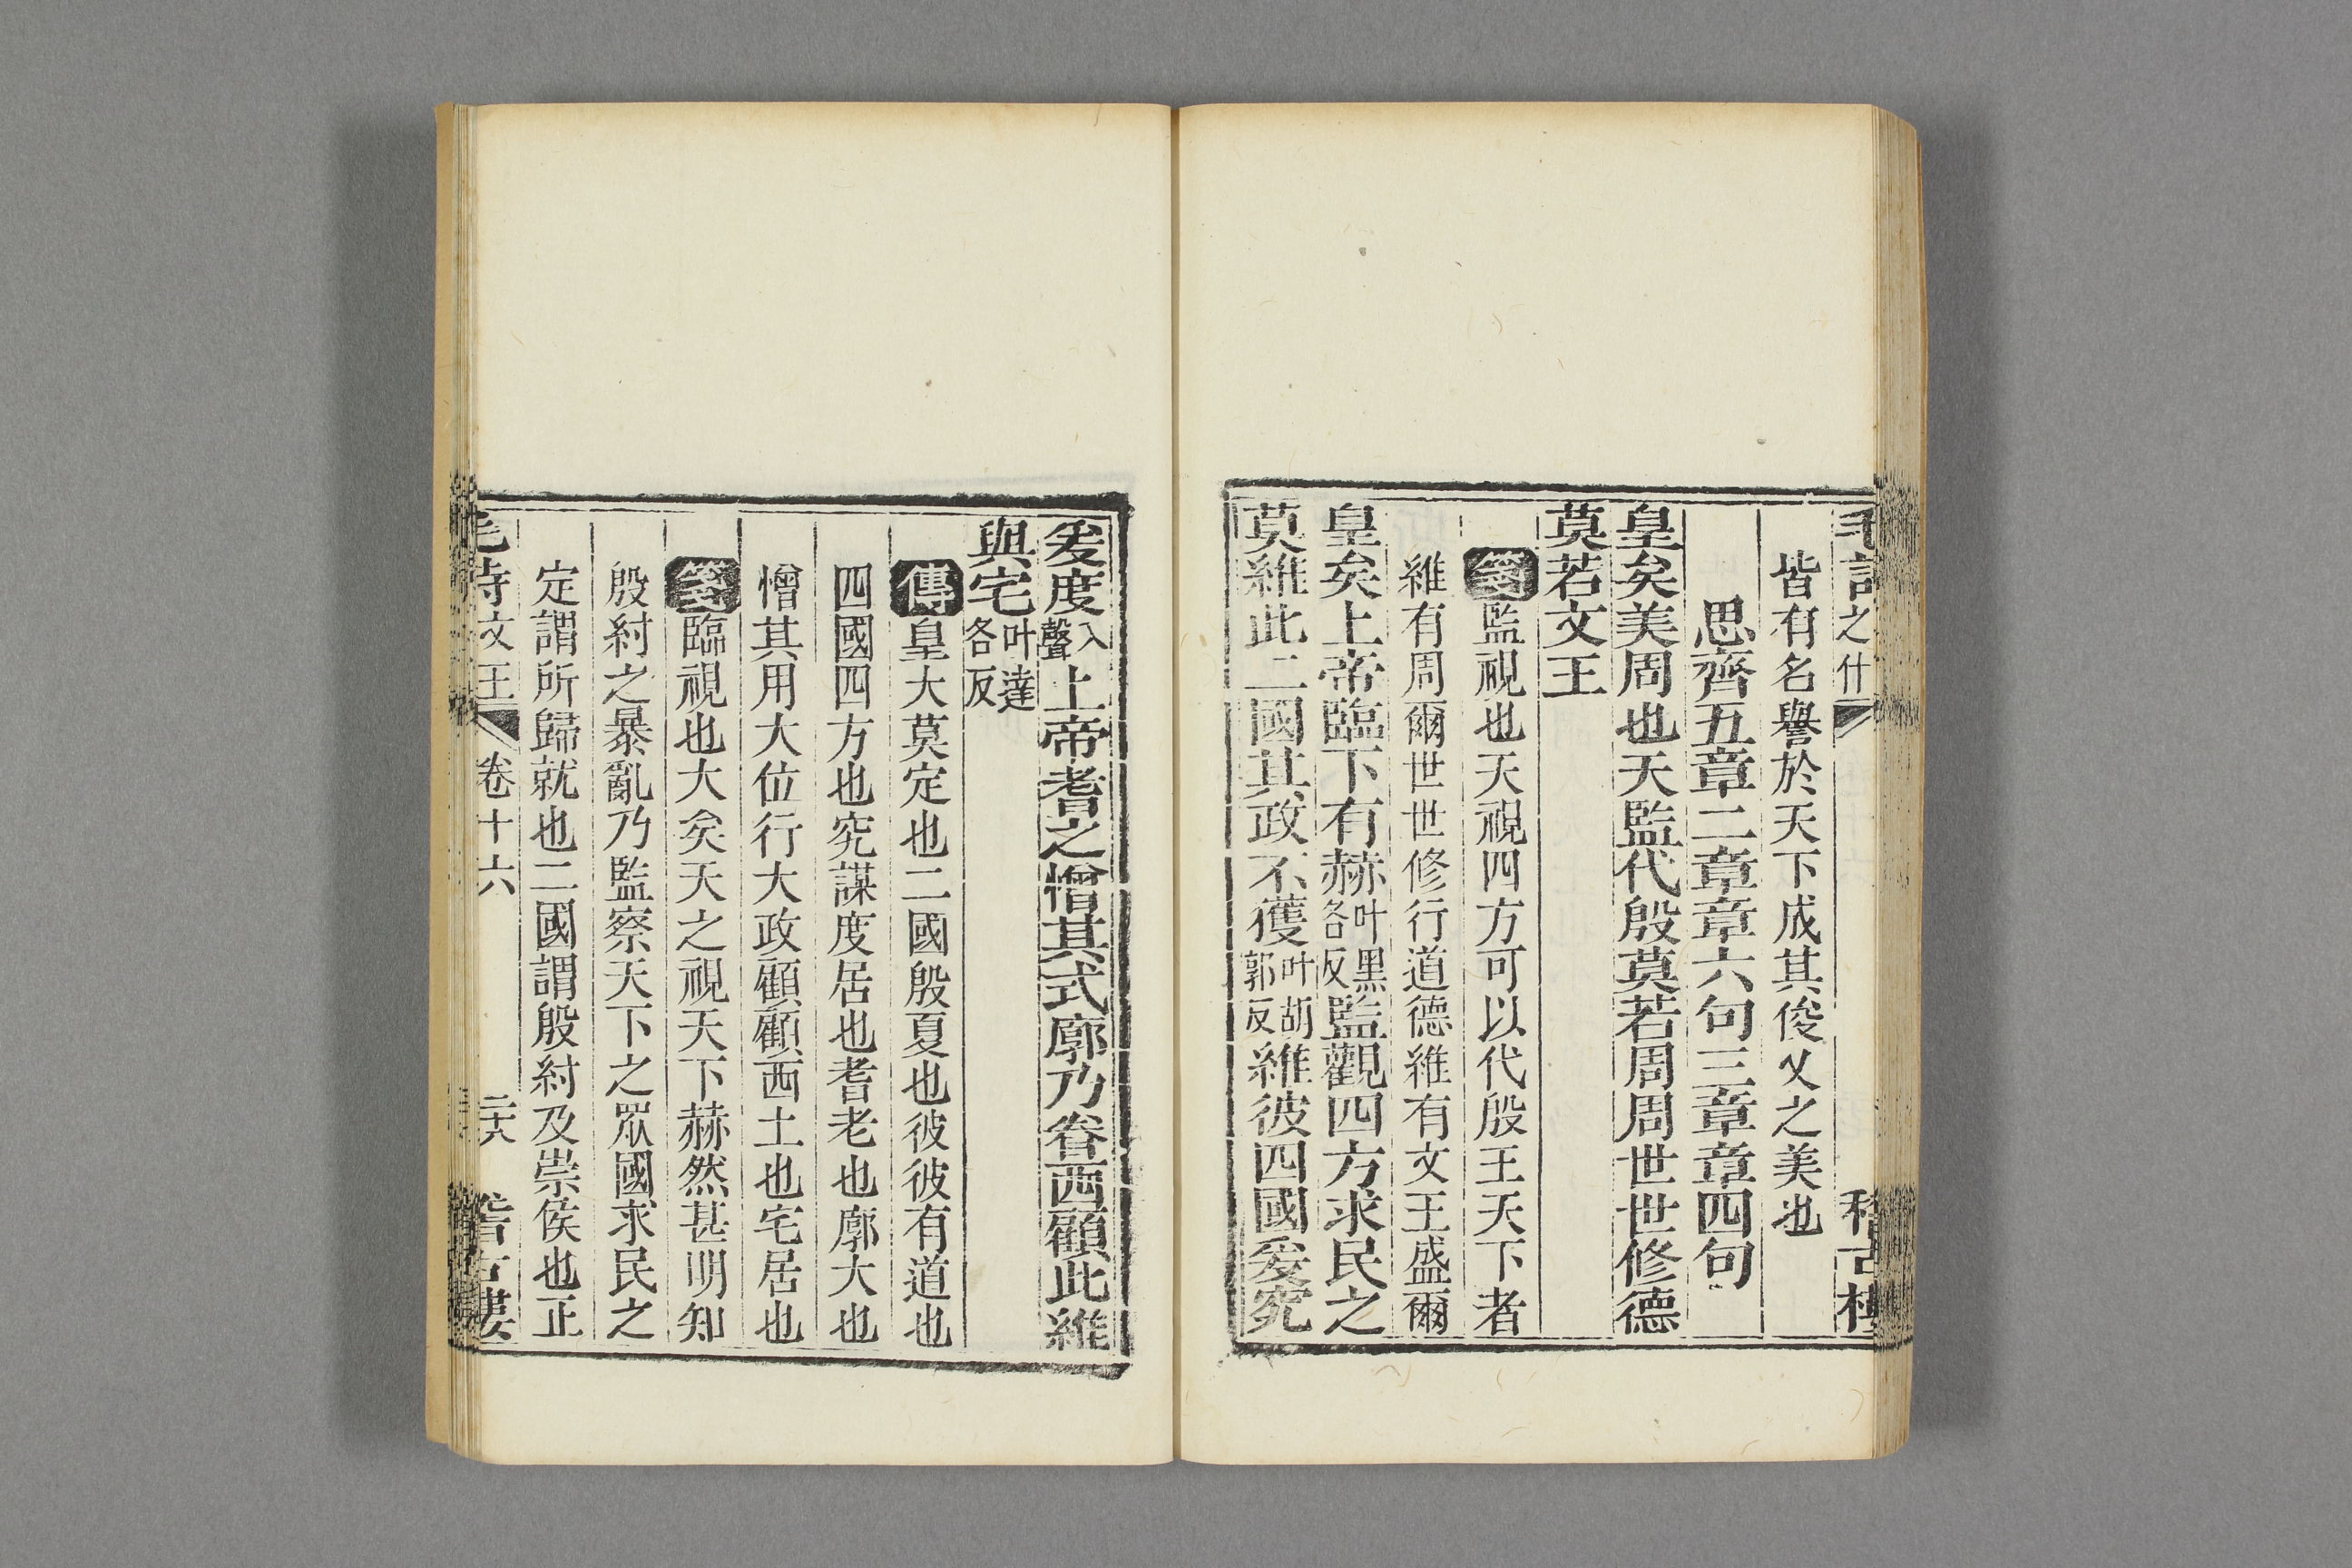 之什
皆有名譽於天下成其俊乂之美也
思齊五章二章章六句三章章四句
皇矣美周也天監代殷莫若周周世世修德
莫若文王
箋監視也天視四方可以代殷王天下者
維有周爾世世修行道德維有文王盛爾
皇矣上帝臨下有赫叶黑各反監觀四方求民之
莫維此二國其政不獲叶胡郭反維彼四國爰究
爰度入聲上帝耆之憎其式廓乃眷西顧此維
與宅叶達各反
傳皇大莫定也二國殷夏也彼彼有道也
四國四方也究謀度居也耆老也廓大也
憎其用大位行大政顧顧西土也宅居也
箋臨視也大矣天之視天下赫然甚明知
殷紂之暴亂乃監察天下之眾國求民之
定謂所歸就也二國謂殷紂及崇侯也正
毛詩文王 卷十六 二六